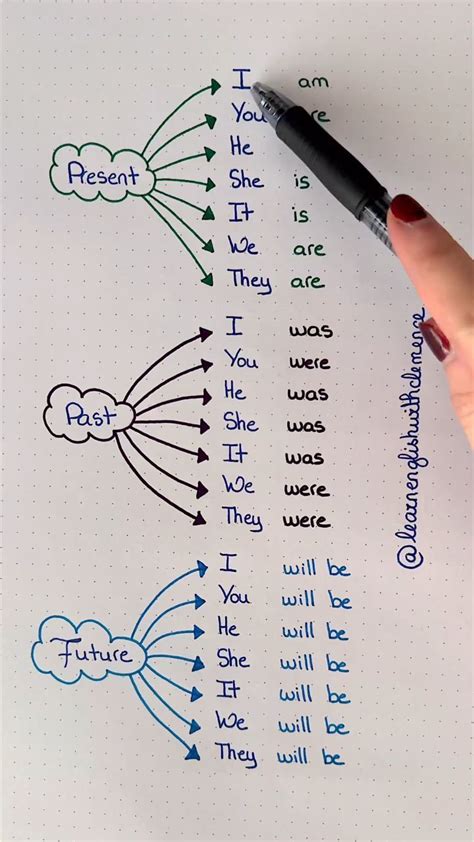 Present
I am
You
He
She is
It is
We are
They are
Past
I was
You were
He was
She was
It was
We were
They were
Future
I will be
You will be
He will be
She will be
It will be
We will be
They will be
@learnenglishwithclemence